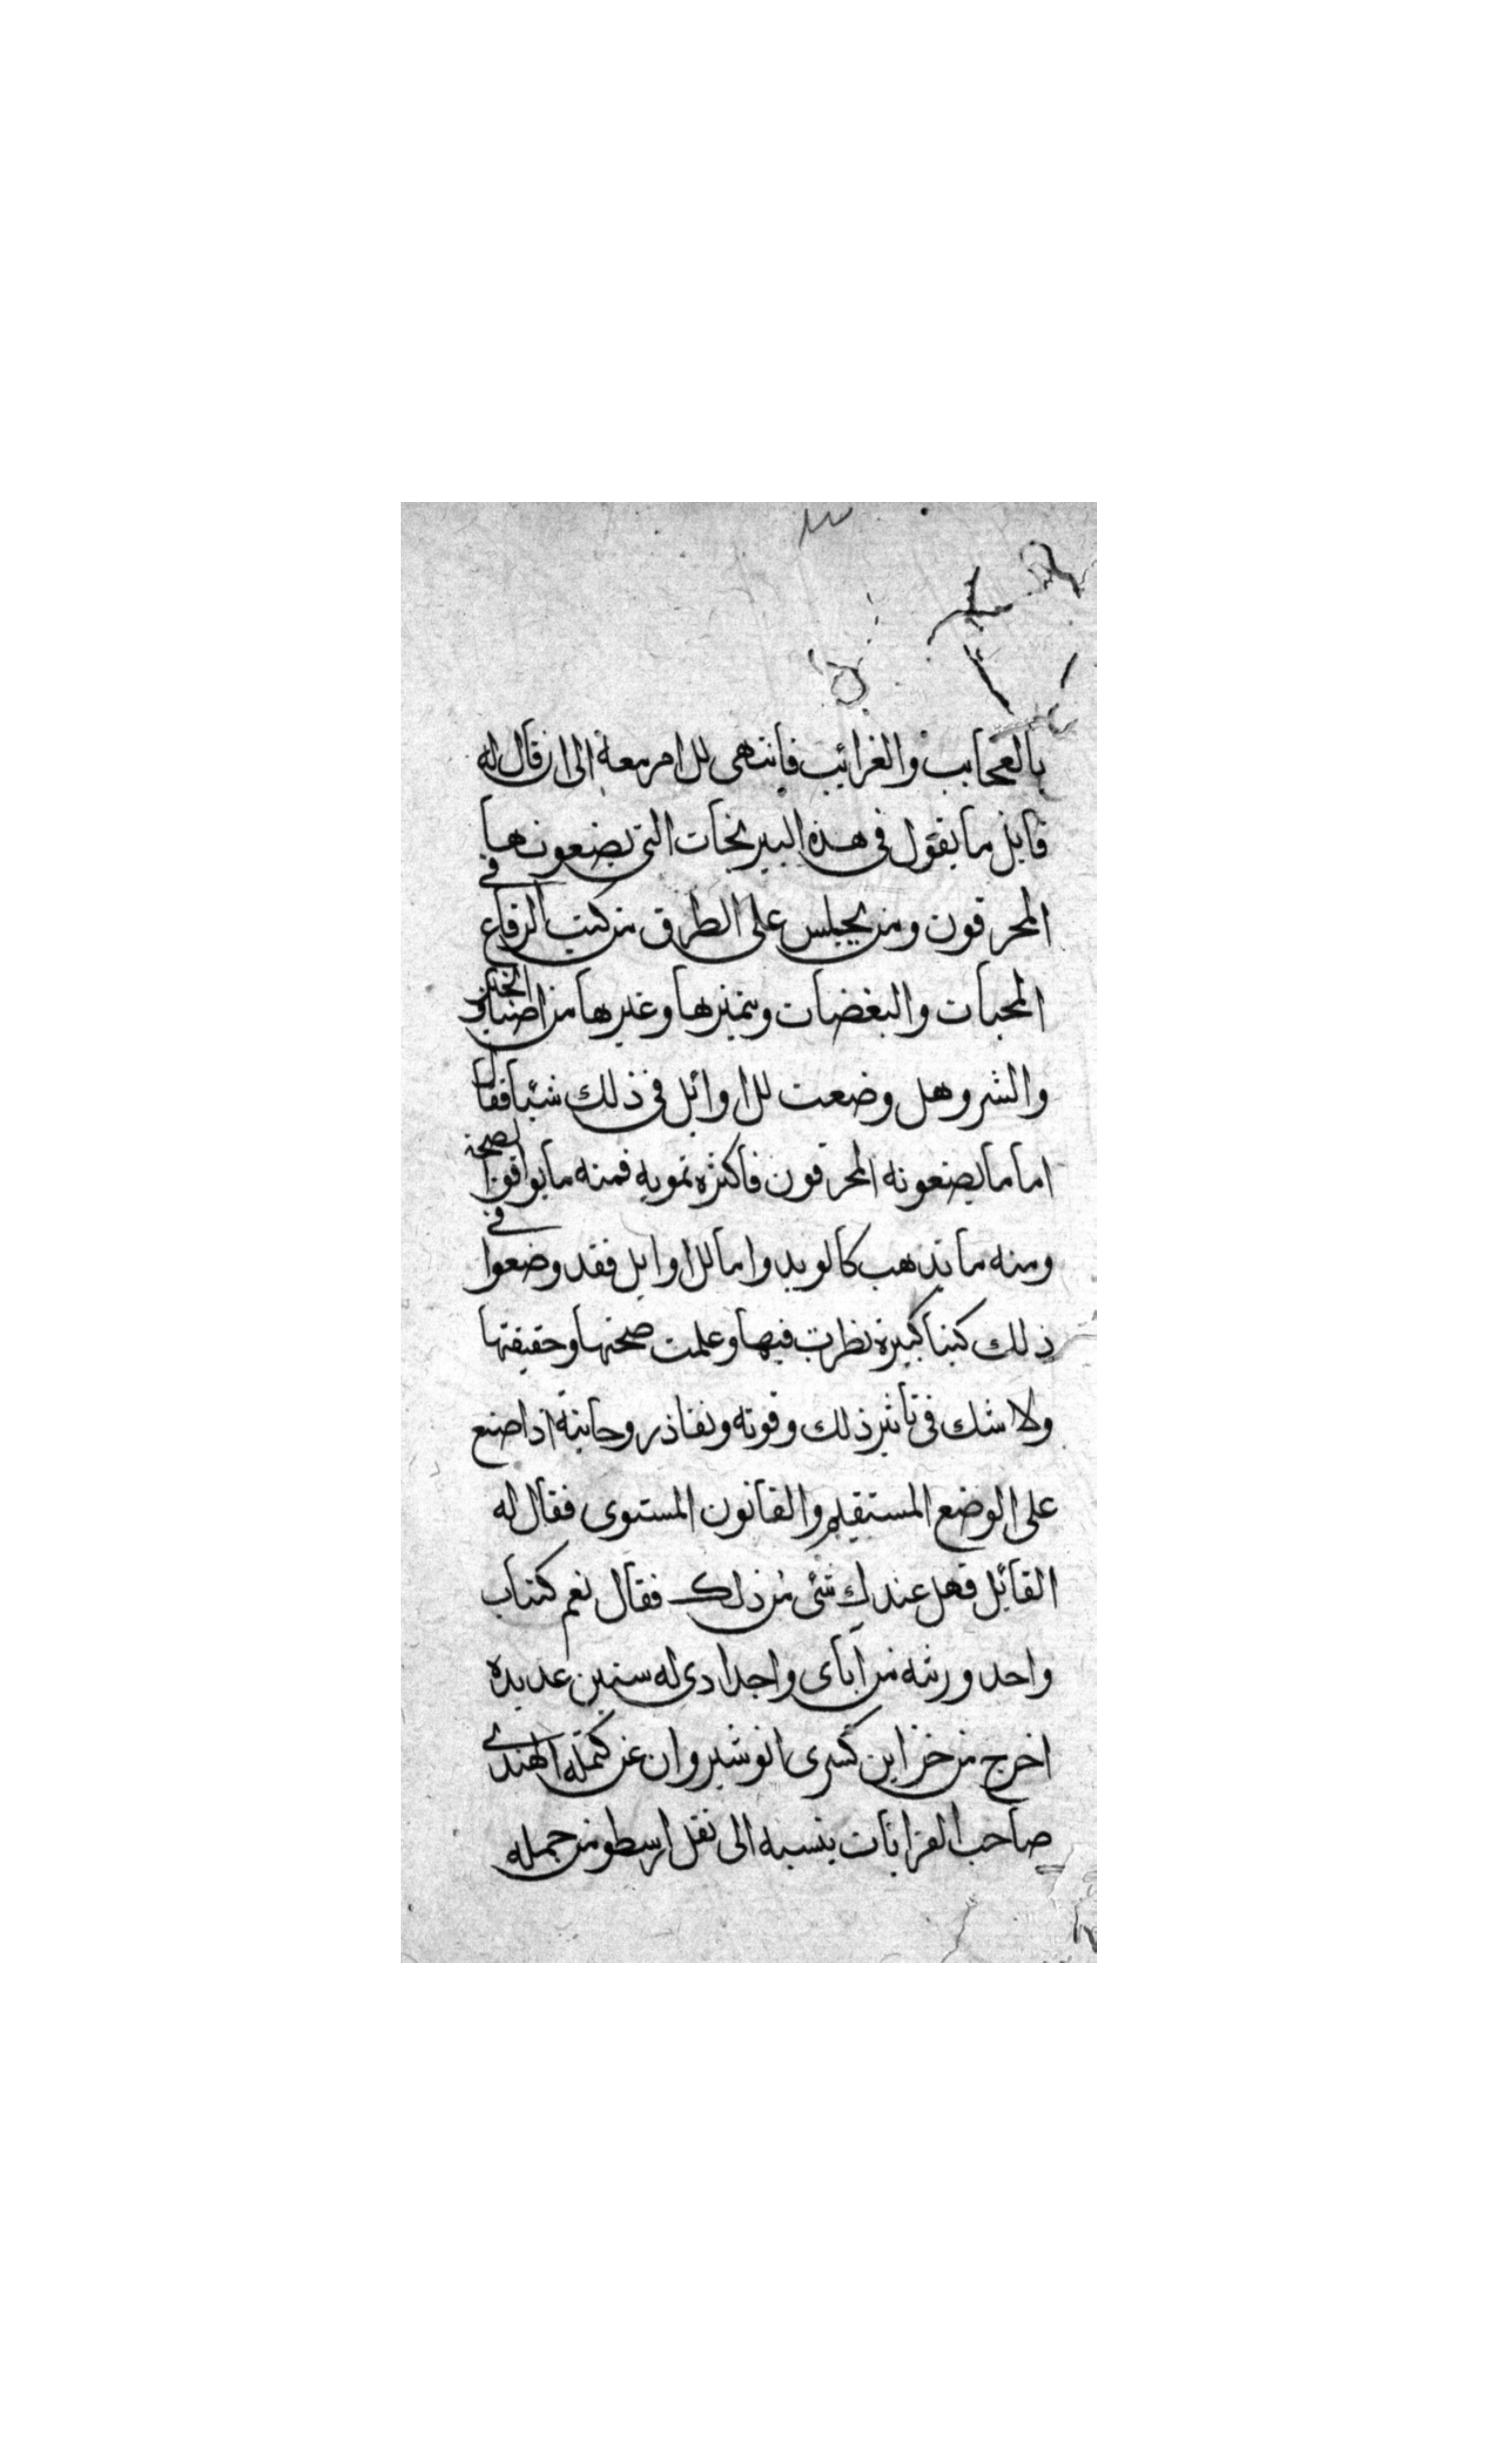 بالعجايب والغرائيب فانتهى للامر معه الى ان قال له
قايل ما يقول فى هذه النيرنجات التى يضعونها
المخرقون ومن يجلس على الطرق من كتب الرقاع فى
المحبات والبغضات وتميزها وغيرها من اصناف الخير
والشر وهل وضعت للاوائل فى ذلك شئيا فقال
اما ما يضعونه المخرقون فاكثره تمويه فمنه ما يوافق الصحة
ومنه ما يذهب واما للاوايل فقد وضعوا فى
ذلك كتبا كبيرة نظرت فيها وعلمت صحتها وحقيقتها
ولا شك فى تاثير ذلك وقوته ونفاذ روحانية اذا صنع
على الوضع المستقيم والقانون المستوى فقال له
القائل فهل عندك شئ من ذلك فقال نعم كتاب
واحد ورثه من اباى واجدادى له سنين عديده
اخرج من خزاين كسرى انوشيروان عن الهندى
صاحب ينسبه الى نقل ارسطو من جمله